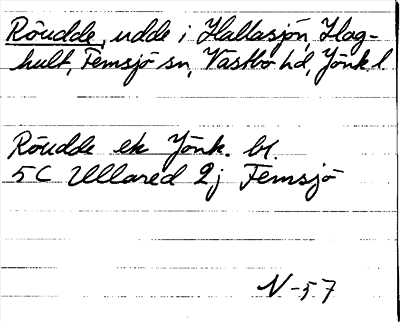 Röudde, udde i Hallasjön, Hag-
hult, Femsjö sn, Västbo hd, Jönk l.
Röudde ek Jönk. bl.
5C Ullared 2j Femsjö
N-57